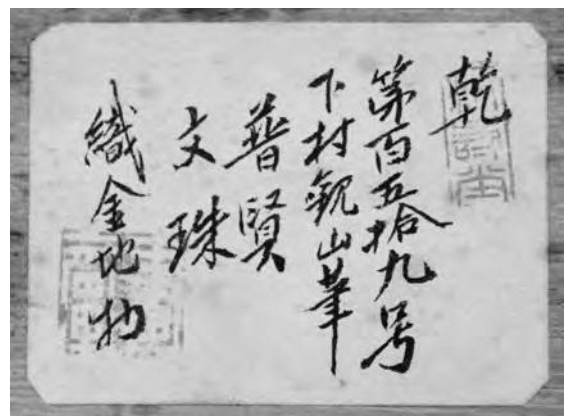 乾
第百五拾九号
下村観山筆
普賢
文珠
織金地物